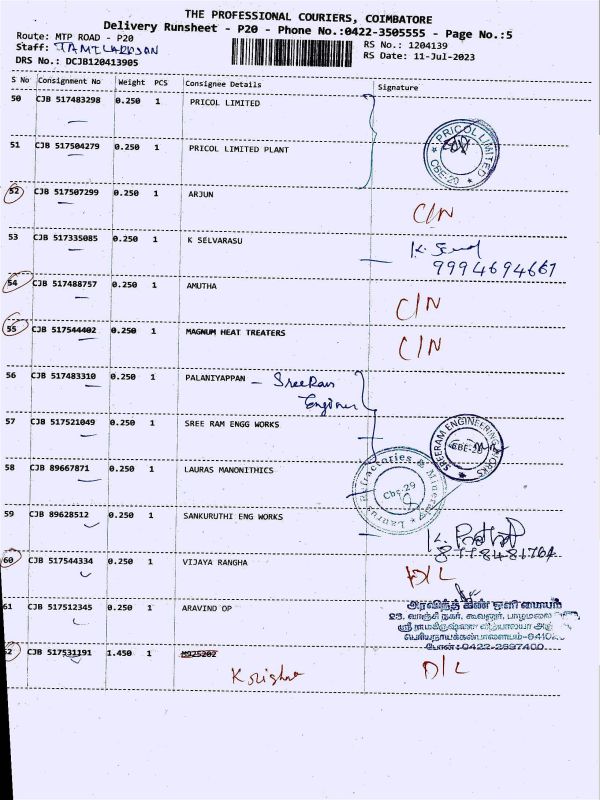 THE PROFESSIONAL COURIERS, COIMBATORE
Delivery Runsheet - P20 - Phone No.:0422-3505555 - Page No.:5
Route: MTP ROAD - P20
RS No.: 1204139
Staff: TAMILARASAN
RS Date: 11-Jul-2023
DRS No.: DCJB120413905
S No Consignment No Weight PCS Consignee Details Signature
50 CJB 517483298 0.250 1 PRICOL LIMITED
PRICOL LIMITED
CBE-20
51 CJB 517504279 0.250 1 PRICOL LIMITED PLANT
52 CJB 517507299 0.250 1 ARJUN
C/N
53 CJB 517335085 0.250 1 K SELVARASU
9994694667
54 CJB 517488757 0.250 1 AMUTHA
C/N
55 CJB 517544402 0.250 1 MAGNUM HEAT TREATERS
C/N
56 CJB 517483310 0.250 1 PALANIYAPPAN - SreeRam
57 CJB 517521049 0.250 1 SREE RAM ENGG WORKS
SREERAM ENGINEERING WORKS
58 CJB 89667871 0.250 1 LAURAS MANONITHICS
Laurus Refractories & Minerals
Cbe-29
59 CJB 89628512 0.250 1 SANKURUTHI ENG WORKS
60 CJB 517544334 0.250 1 VIJAYA RANGHA
D/L
61 CJB 517512345 0.250 1 ARAVIND OP
அரவிந்த் கண் ஒளி மையம்
போன்:0422-2697400
62 CJB 517531191 1.450 1
D/L
Krishna